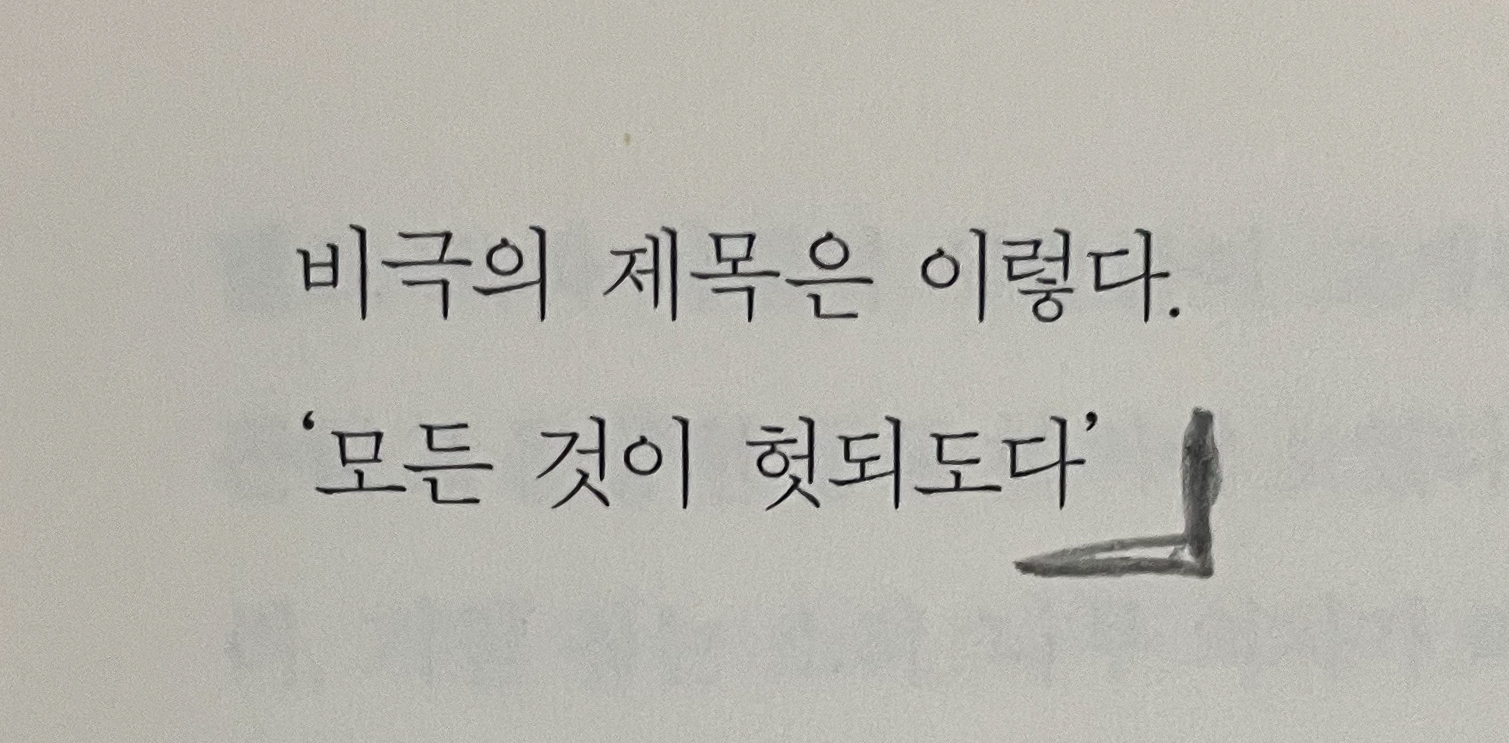 비극의 제목은 이렇다.
‘모든 것이 헛되도다’